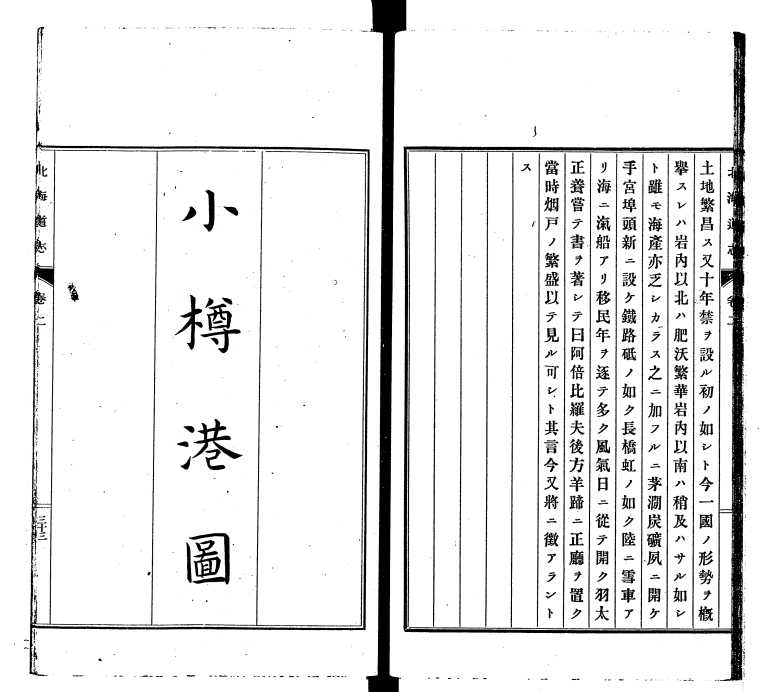 北海道志 卷二
土地繁昌ス又十年禁ヲ設ル初ノ如シト今一國ノ形勢ヲ概
擧スレハ岩内以北ハ肥沃繁華岩内以南ハ稍及ハサル如シ
ト雖モ海產亦乏シカラス之ニ加フルニ茅澗炭礦夙ニ開ケ
手宮埠頭新ニ設ケ鐵路砥ノ如ク長橋虹ノ如ク陸ニ雪車ア
リ海ニ滊船アリ移民年ヲ逐テ多ク風氣日ニ從テ開ク羽太
正養嘗テ書ヲ著シテ曰阿倍比羅夫後方羊蹄ニ正廳ヲ置ク
當時烟戸ノ繁盛以テ見ル可シト其言今又將ニ徵アラント
ス
小樽港圖
北海道志 卷二 三十三